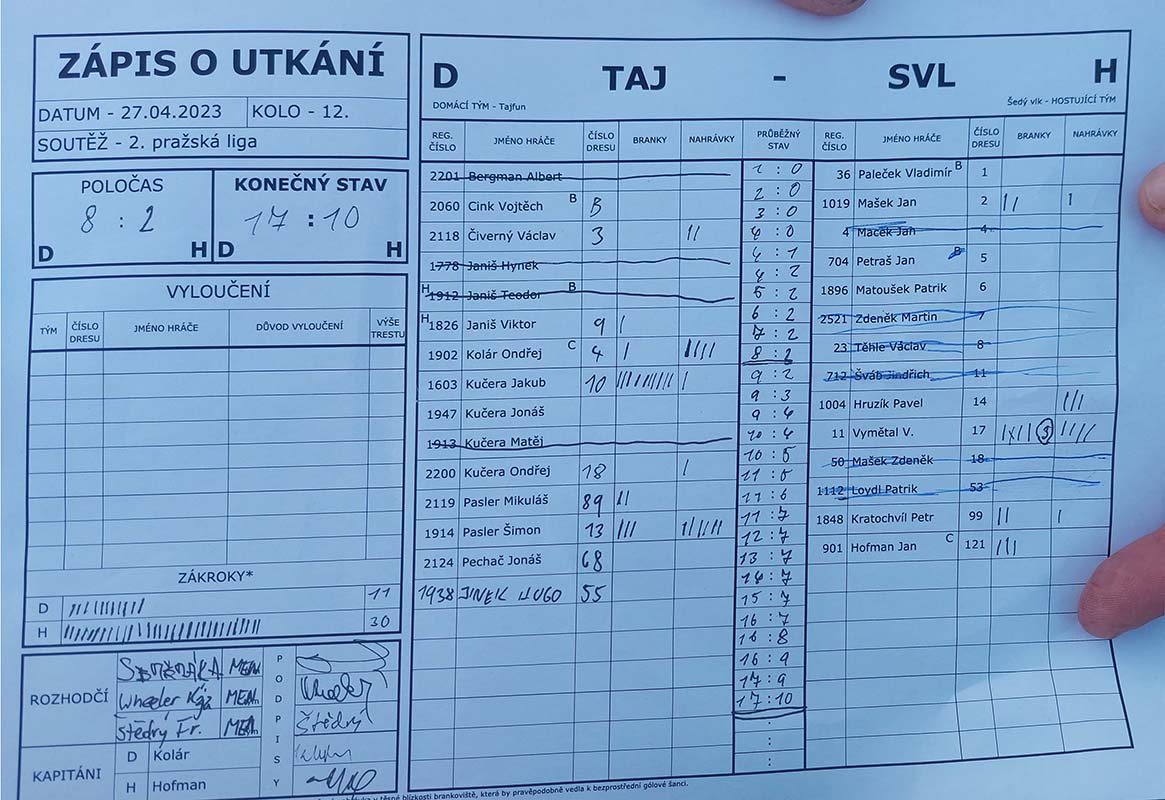 ZÁPIS O UTKÁNÍ
DATUM - 27.04.2023 KOLO - 12.
SOUTĚŽ - 2. pražská liga
POLOČAS KONEČNÝ STAV
8 : 2 17 : 10
D H D H
VYLOUČENÍ
TÝM ČÍSLO DRESU JMÉNO HRÁČE DŮVOD VYLOUČENÍ VÝŠE TRESTU
ZÁKROKY*
D 11
H 30
ROZHODČÍ
Wheeler
Štědrý Fr.
PODPISY
Štědrý
KAPITÁNI
D Kolár
H Hofman
D TAJ - SVL H
DOMÁCÍ TÝM - Tajfun Šedý vlk - HOSTUJÍCÍ TÝM
REG. ČÍSLO JMÉNO HRÁČE ČÍSLO DRESU BRANKY NAHRÁVKY PRŮBĚŽNÝ STAV REG. ČÍSLO JMÉNO HRÁČE ČÍSLO DRESU BRANKY NAHRÁVKY
2201 Bergman Albert
2060 Cink Vojtěch B B
2118 Čiverný Václav 3 II
1778 Janiš Hynek
H 1912 Janiš Teodor B
H 1826 Janiš Viktor 9 I
1902 Kolár Ondřej C 4 I IIII
1603 Kučera Jakub 10 I
1947 Kučera Jonáš
1913 Kučera Matěj
2200 Kučera Ondřej 18 I
2119 Pasler Mikuláš 89 II
1914 Pasler Šimon 13 III
2124 Pechač Jonáš 68
1938 JINEK HUGO 55
1 : 0
2 : 0
3 : 0
4 : 0
4 : 1
4 : 2
5 : 2
6 : 2
7 : 2
8 : 2
9 : 2
9 : 3
9 : 4
10 : 4
10 : 5
11 : 5
11 : 6
11 : 7
12 : 7
13 : 7
14 : 7
15 : 7
16 : 7
16 : 8
16 : 9
17 : 9
17 : 10
36 Paleček Vladimír B 1
1019 Mašek Jan 2 II I
4 Macek Jan 4
704 Petraš Jan B 5
1896 Matoušek Patrik 6
2521 Zdeněk Martin 7
23 Těhle Václav 8
712 Šváb Jindřich 11
1004 Hruzík Pavel 14 III
11 Vymětal V. 17 3 IIII
50 Mašek Zdeněk 18
1112 Loydl Patrik 53
1848 Kratochvíl Petr 99 II I
901 Hofman Jan C 121 III
v těsné blízkosti brankoviště, která by pravěpodobně vedla k bezprostřední gólové šanci.